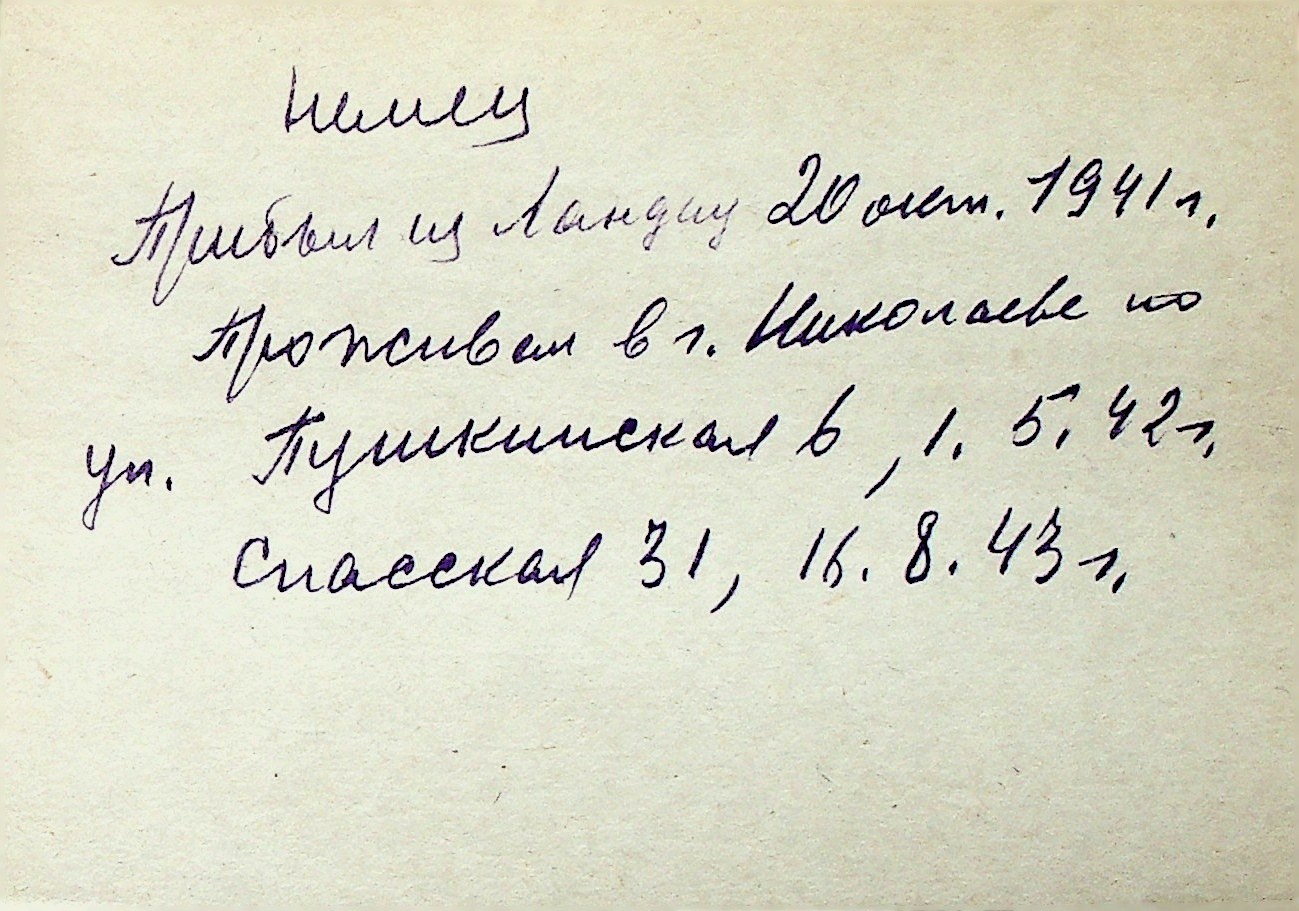 Немец
Прибыл из Ландау 20 окт. 1941 г.
Проживал в г. Николаеве по
ул. Пушкинская 6, 1. 5. 42 г.
Спасская 31, 16. 8. 43 г.